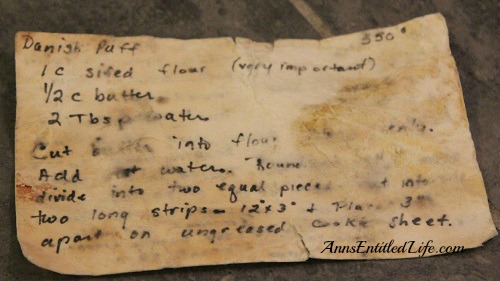 Danish Puff 350°
1 c sifed flour (very important)
1/2 c butter
2 Tbsp water
Cut into flour only.
Add water.
divide into two equal pieces into
two long strips - 12"x3" + Place 3"
apart on ungreased cooke sheet.
AnnsEntitledLife.com